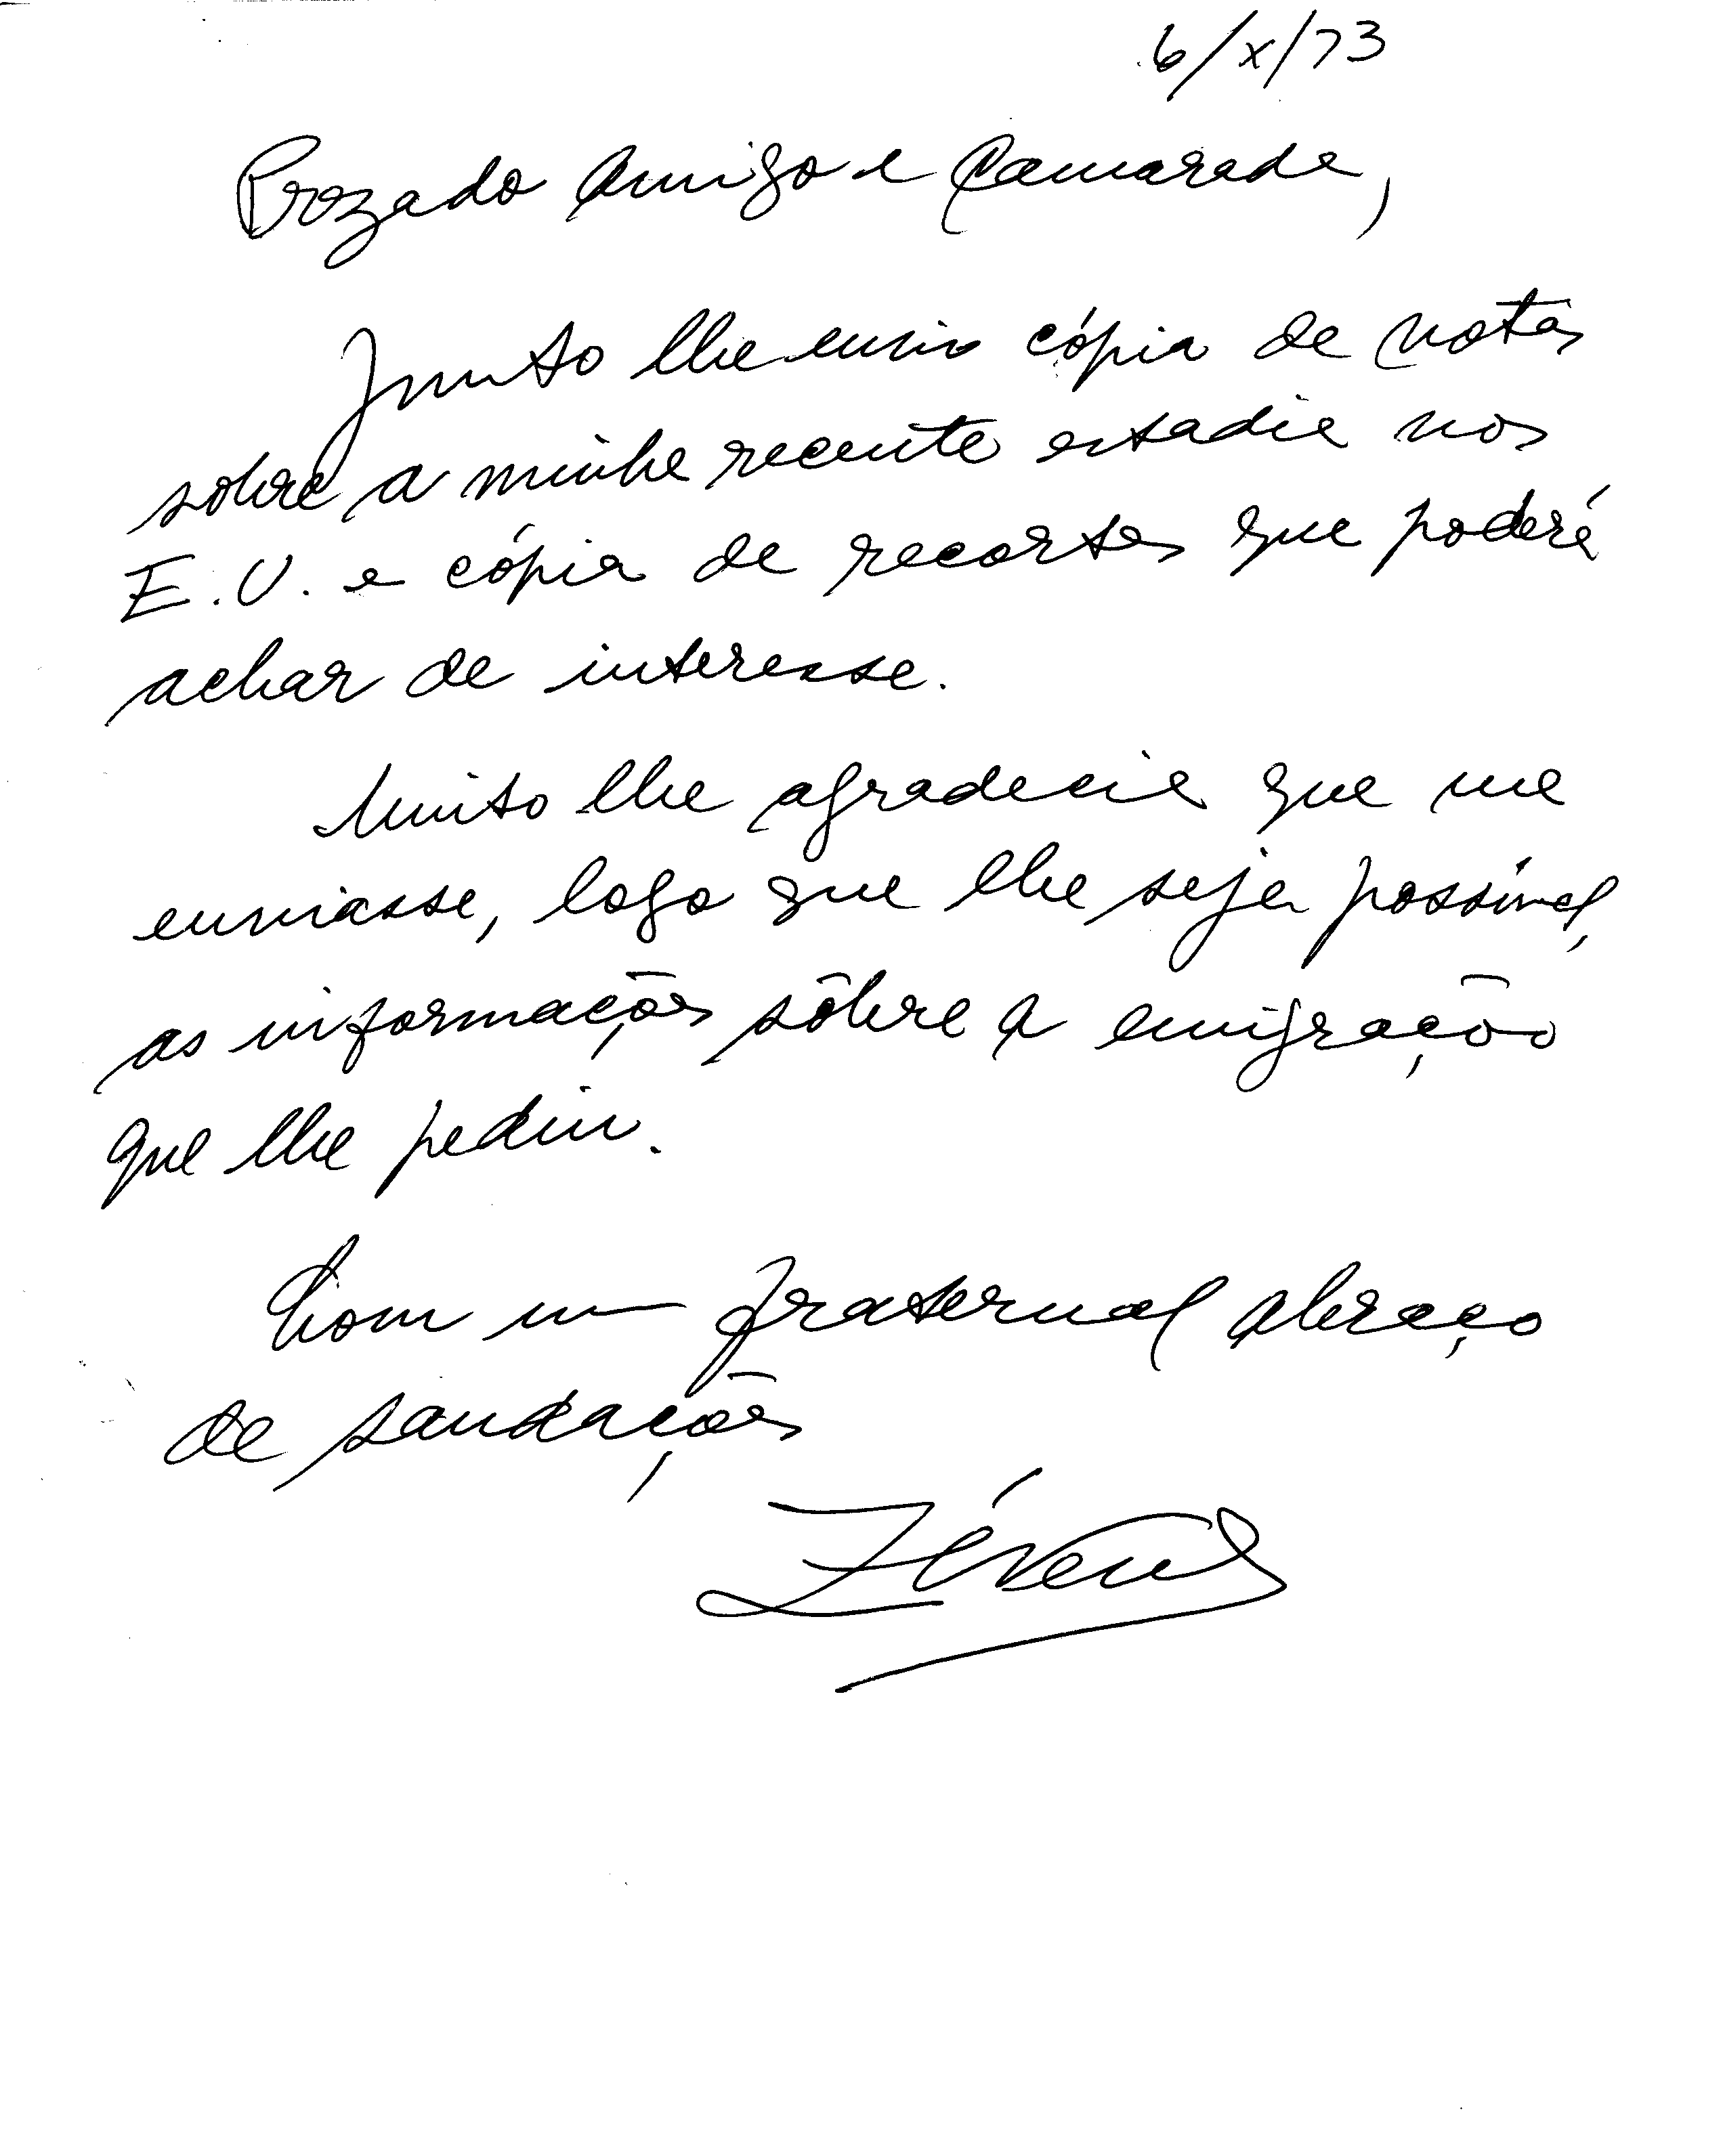 6/X/73
Prezado Amigo e Camarada,
Junto lhe envio cópia de notas
sobre a minha recente estadia nos
E.U. e cópia de recortes que poderá
achar de interesse.
Muito lhe agradecia que me
enviasse, logo que lhe seja possível,
as informações sôbre a emigração
que lhe pedi.
Com um fraternal abraço
de saudações